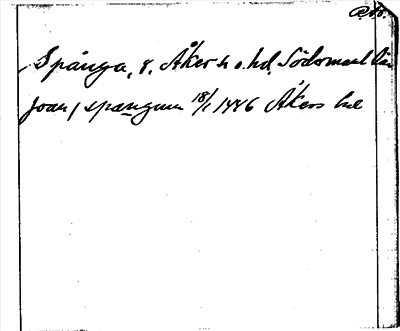 Spånga, g. Åker s o. hd, Södermanl län
joan j spængum 18/1 1446 Åkers hd